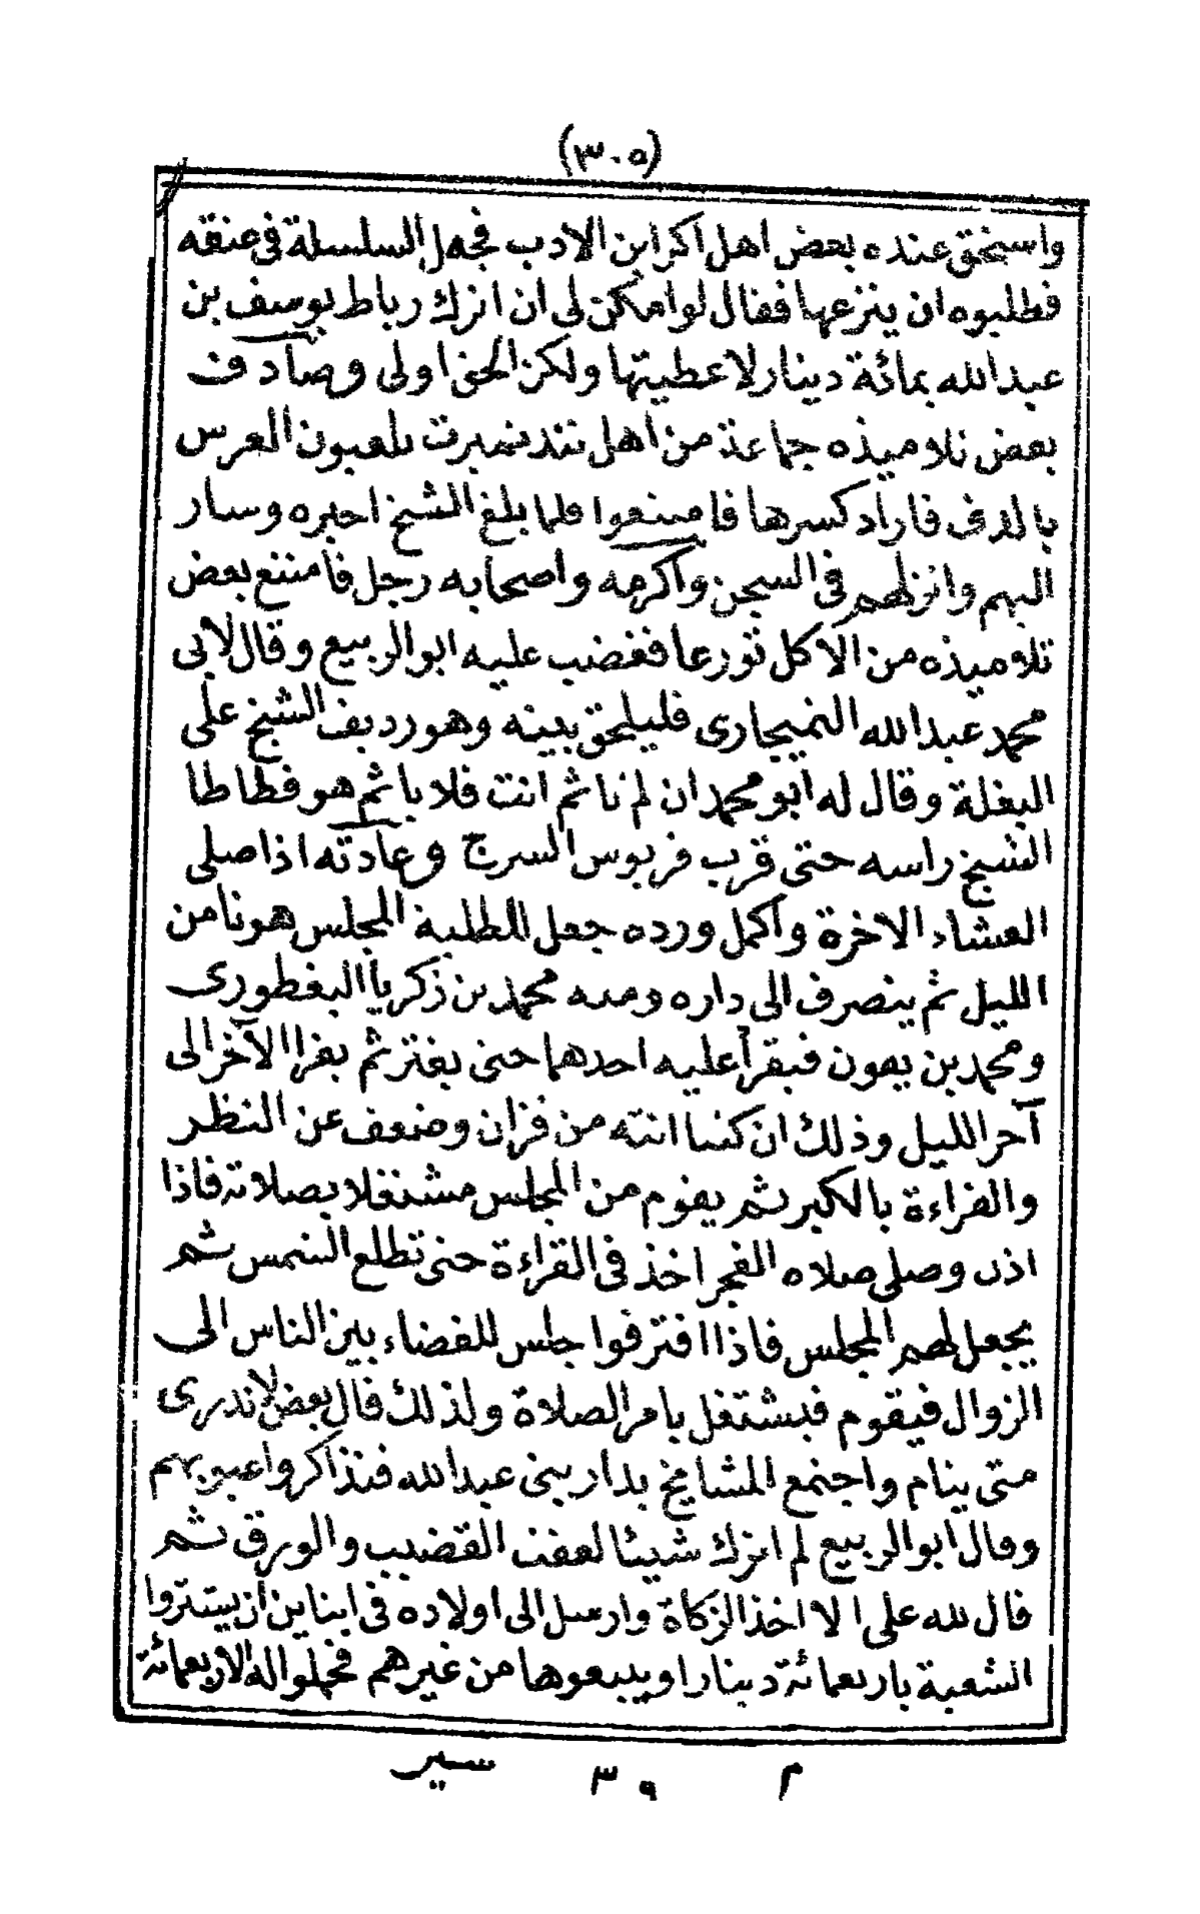 (٣٠٥)
واستحق عنده بعض اهل اكراين الادب فجعل السلسلة في عنقه
فطلبوه ان ينزعها فقال لو امكن لي ان انزك رباط يوسف بن
عبد الله بمائة دينار لاعطيتها ولكن الحق اولى وصادف
بعض تلاميذه جماعة من اهل تندنميرت يلعبون العرس
بالدف فاراد كسرها فامتنعوا فلما بلغ الشيخ اخبره وسار
اليهم وانزلهم في السجن واكرمه واصحابه رجل فامتنع بعض
تلاميذه من الاكل تورعا فغضب عليه ابو الربيع وقال لابي
محمد عبد الله النميجاري فليلحق ببيته وهو رديف الشيخ على
البغلة وقال له ابو محمد ان لم ناثم انت فلا ياثم هو فطاطا
الشيخ راسه حتى قرب قربوس السرج وعادته اذا صلى
العشاء الاخرة واكمل ورده جعل للطلبة المجلس هونا من
الليل ثم ينصرف الى داره ومعه محمد بن زكريا البغطوري
ومحمد بن يعون فيقرأ عليه احدهما حتى يفتر ثم يقرا الآخر الى
آخر الليل وذلك ان كتبا اتته من فزان وضعف عن النظر
والقراءة بالكبر ثم يقوم من المجلس مشتغلا بصلاته فاذا
اذن وصلى صلاه الفجر اخذ في القراءة حتى تطلع الشمس ثم
يجعل لهم المجلس فاذا افترقوا جلس للقضاء بين الناس الى
الزوال فيقوم فيشتغل بامر الصلاة ولذلك قال بعض لا ندري
متى ينام واجتمع المشايخ بدار ببني عبد الله فتذاكروا عيوبهم
وقال ابو الربيع لم اترك شيئا لعفت القضيب والورق ثم
قال لله علي الا اخذ الزكاة وارسل الى اولاده في ايناين ان يشتروا
الشعبة باربعمائة دينار او يبيعوها من غيرهم فحملوا اله الاربعمائة
م ٣٩ سير